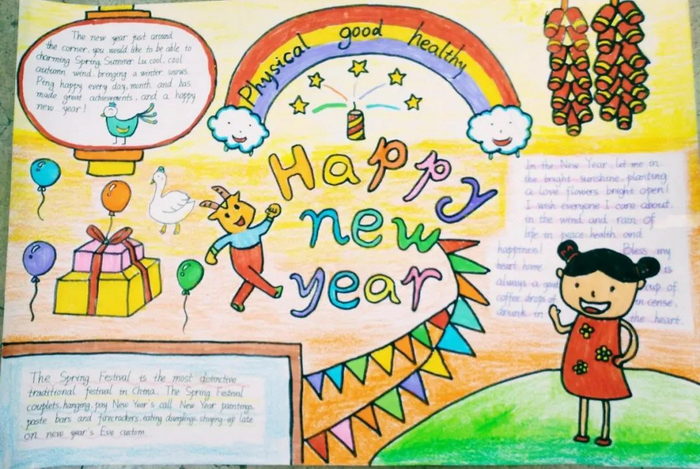 The new year just around
the corner, you would like to be able to
charming Spring, Summer Lu cool, cool
autumn wind, bringing a winter works.
Peng happy every day, month and has
made great achievements, and a happy
new year!
Physical good healthy
Happy
new
year
In the New Year, let me in
the bright sunshine, planting
a love flowers bright open!
I wish everyone I care about,
in the wind and rain of
life in peace, health and
happiness! Bless my
heart home is
always a cup of
coffee, drops of incense,
drunk in the heart.
The Spring Festival is the most distinctive
traditional festival in China. The Spring Festival
couplets, hanging, pay New Year's call New Year paintings,
paste bars and firecrackers, eating dumplings, staying up late
on new year's Eve custom